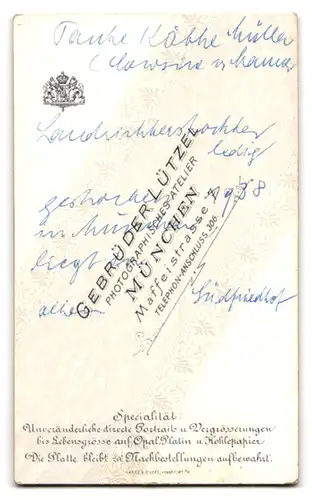 Tante Käthe Müller
(Cousine v. Mama
Landrichterstochter
ledig
gestorben 1938
in München
liegt
alten Südfriedhof
GEBRÜDER LÜTZEL
PHOTOGRAPHISCHES ATELIER
MÜNCHEN
Maffeistrasse
TELEPHON-ANSCHLUSS 306.
Specialität:
Unveränderliche directe Portraits u. Vergrösserungen
bis Lebensgrösse auf Opal, Platin u. Kohlepapier.
Die Platte bleibt für Nachbestellungen aufbewahrt.